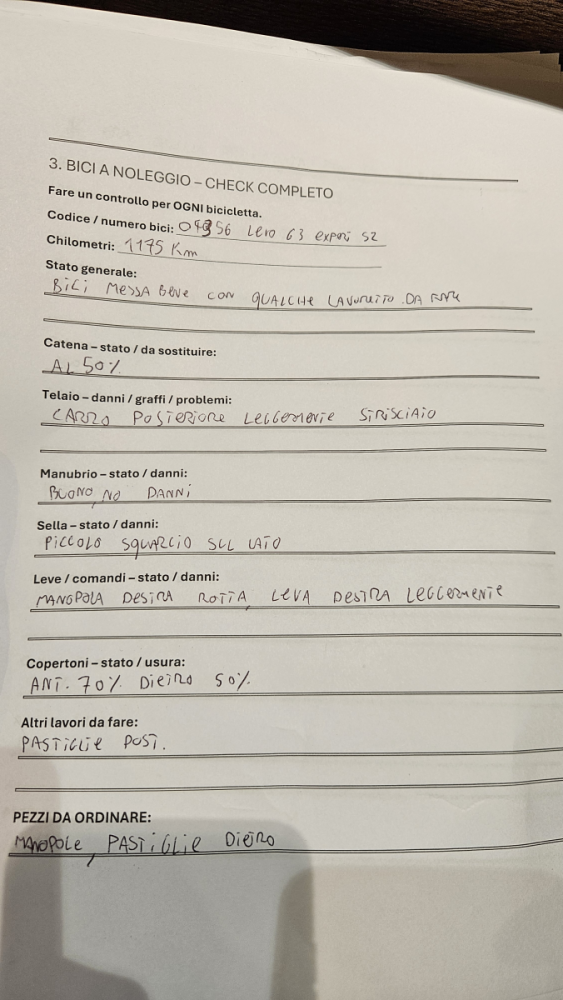 3. BICI A NOLEGGIO – CHECK COMPLETO
Fare un controllo per OGNI bicicletta.
Codice / numero bici: 04356 Levo G3 expert S2
Chilometri: 1175 Km
Stato generale:
BiCi MESSA BENE CON QUALCHE LAVORETTO DA FARE
Catena – stato / da sostituire:
AL 50%
Telaio – danni / graffi / problemi:
CARRO POSTERIORE LEGGERMENTE STRISCIATO
Manubrio – stato / danni:
BUONO, NO DANNi
Sella – stato / danni:
PiCCOLO SQUARCIO SUL LATO
Leve / comandi – stato / danni:
MANOPOLA DESTRA ROTTA, LEVA DESTRA LEGGERMENTE
Copertoni – stato / usura:
ANT. 70% DiETRO 50%
Altri lavori da fare:
PASTiGLiE POST.
PEZZI DA ORDINARE:
MANOPOLE, PASTiGLiE DiETRO